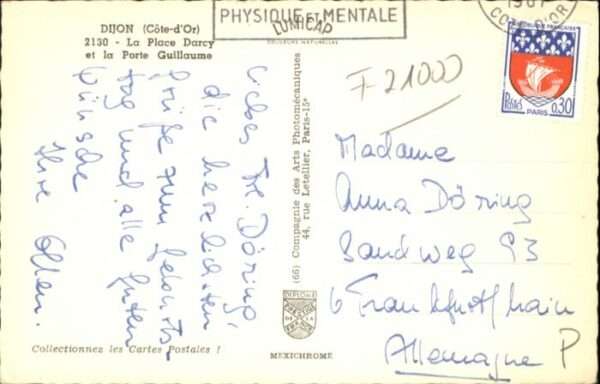 PHYSIQUE et MENTALE
DIJON (Côte-d'Or)
2130 - La Place Darcy
et la Porte Guillaume
LUMICAP
COULEURS NATURELLES
COTE-D'OR
REPUBLIQUE FRANÇAISE
Postes
0,30
PARIS
F-21000
Liebes Frl. Döring,
die herzlichsten
Grüße zum Geburts-
tag und alle guten
Wünsche
Ihre
(66) Compagnie des Arts Photomécaniques
44, rue Letellier, Paris-15e
Madame
Anna Döring
Sandweg 93
6 Frankfurt/Main
Allemagne
DIPLOME
PRESTIGE
DE LA
FRANCE
Collectionnez les Cartes Postales !
MEXICHROME